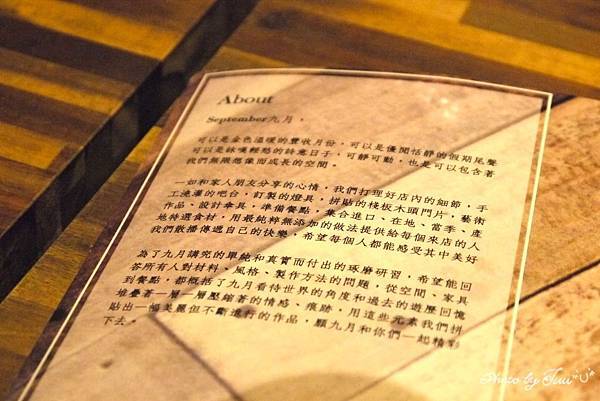 About
September九月，
可以是金色溫暖的豐收月份，可以是優閒恬靜的假期尾聲
可以是詠嘆輕愁的詩意日子，可靜可動，也是可以包含著
我們無限想像而成長的空間。
一如和家人朋友分享的心情，我們打理好店內的細節，手
工洗灌的吧台，訂製的燈具，拼貼的棧板木頭門片，藝術
作品、設計傘具，準備餐點，集合進口、在地、當季、產
地特選食材，用最純粹無添加的做法提供給每個來店的人
我們散播傳遞自己的快樂，希望每個人都能感受其中美好
為了九月講究的單純和真實而付出的琢磨研習，希望能回
答所有人對材料、風格、製作方法的問題，從空間、家具
到餐點，都概括了九月看待世界的角度和過去的遊歷回憶
堆疊著一層一層壓縮著的情感、痕跡，用這些元素我們拼
貼出一幅美麗但不斷進行的作品，願九月和你們一起精彩
下去。
Photo by